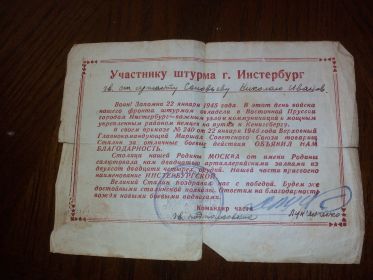 Участнику штурма г. Инстербург
гв. ст. сержанту Соловьеву Николаю Иванов.
Воин! Запомни 22 января 1945 года. В этот день войска
нашего фронта штурмом овладели в Восточной Пруссии
городом Инстербург—важным узлом коммуникаций и мощным
укрепленным районом немцев на путях к Кенигсбергу.
в своем приказе № 240 от 22 января 1945 года Верховный
Главнокомандующий Маршал Советского Союза товарищ
Сталин за отличные боевые действия ОБЪЯВИЛ НАМ
БЛАГОДАРНОСТЬ.
Столица нашей Родины МОСКВА от имени Родины
салютовала нам двадцатью артиллерийскими залпами из
двухсот двадцати четырех орудий. Нашей части присвоено
наименование ИНСТЕРБУРГСКОЙ.
Великий Сталин поздравил нас с победой. Будем же
достойными сталинской похвалы. Ответим на благодарность
вождя новыми боевыми подвигами.
Командир части
гв. подполковник